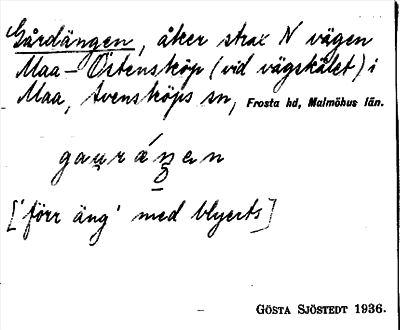 Gårdängen, åker strax N vägen
Maa - Östensköp (vid vägskälet) i
Maa, Svensköps sn, Frosta hd, Malmöhus län.
['förr äng' med blyerts]
GÖSTA SJÖSTEDT 1936.